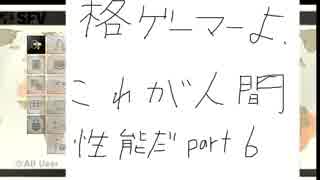 SFV
格ゲーマーよ.
これが人間
性能だ part 6
All User